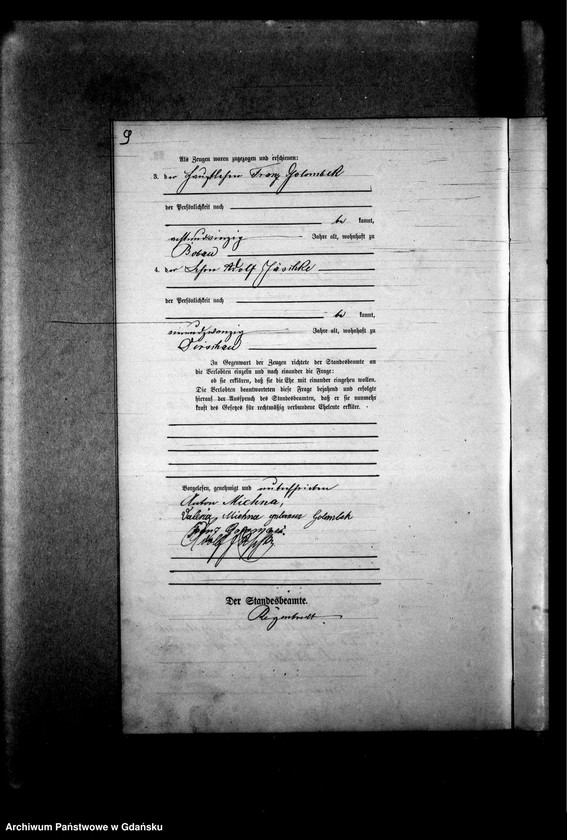 9
Als Zeugen waren zugezogen und erschienen:
3. der Hauptlehrer Franz Golombek
der Persönlichkeit nach
be kannt,
Jahre alt, wohnhaft zu
Bobau
4. der Lehrer Adolf Jäschke
der Persönlichkeit nach
be kannt,
einundzwanzig Jahre alt, wohnhaft zu
Dirschau
In Gegenwart der Zeugen richtete der Standesbeamte an
die Verlobten einzeln und nach einander die Frage:
ob sie erklären, daß sie die Ehe mit einander eingehen wollen.
Die Verlobten beantworteten diese Frage bejahend und erfolgte
hierauf der Ausspruch des Standesbeamten, daß er sie nunmehr
kraft des Gesetzes für rechtmäßig verbundene Eheleute erkläre.
Vorgelesen, genehmigt und unterschrieben
Anton Michna,
Valeria Michna geborene Golombek
Franz
Adolf Jäschke
Der Standesbeamte.
Archiwum Państwowe w Gdańsku